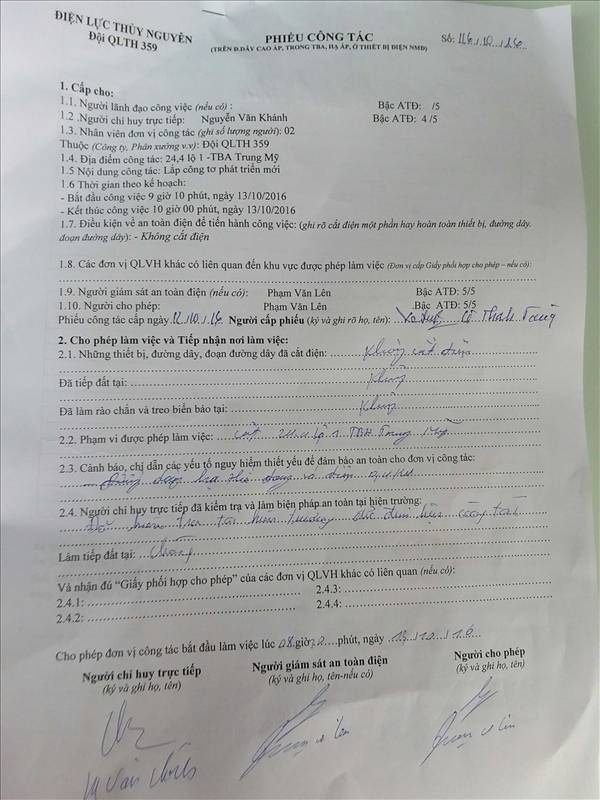 ĐIỆN LỰC THỦY NGUYÊN
Đội QLTH 359
PHIẾU CÔNG TÁC
(TRÊN Đ.DÂY CAO ÁP, TRONG TBA, HẠ ÁP, Ở THIẾT BỊ ĐIỆN NMĐ)
Số:
1. Cấp cho:
1.1. Người lãnh đạo công việc (nếu có) : Bậc ATĐ: /5
1.2 .Người chỉ huy trực tiếp: Nguyễn Văn Khánh Bậc ATĐ: 4 /5
1.3. Nhân viên đơn vị công tác (ghi số lượng người): 02
Thuộc (Công ty, Phân xưởng v.v): Đội QLTH 359
1.4. Địa điểm công tác: 24,4 lộ 1 -TBA Trung Mỹ
1.5 Nội dung công tác: Lắp công tơ phát triển mới
1.6 Thời gian theo kế hoạch:
- Bắt đầu công việc 9 giờ 10 phút, ngày 13/10/2016
- Kết thúc công việc 10 giờ 00 phút, ngày 13/10/2016
1.7. Điều kiện về an toàn điện để tiến hành công việc: (ghi rõ cắt điện một phần hay hoàn toàn thiết bị, đường dây.
đoạn đường dây): - Không cắt điện
1.8. Các đơn vị QLVH khác có liên quan đến khu vực được phép làm việc (Đơn vị cấp Giấy phối hợp cho phép – nếu có):
1.9. Người giám sát an toàn điện (nếu có): Phạm Văn Lên Bậc ATĐ: 5/5
1.10. Người cho phép: Phạm Văn Lên .Bậc ATĐ: 5/5
Phiếu công tác cấp ngày 12/10/16 Người cấp phiếu (ký và ghi rõ họ, tên): Thanh Tùng
2. Cho phép làm việc và Tiếp nhận nơi làm việc:
2.1. Những thiết bị, đường dây, đoạn đường dây đã cắt điện: Không cắt điện
Đã tiếp đất tại: Không
Đã làm rào chắn và treo biển báo tại: Không
2.2. Phạm vi được phép làm việc: cột 24.4 lộ 1 TBA Trung Mỹ
2.3. Cảnh báo, chỉ dẫn các yếu tố nguy hiểm thiết yếu để đảm bảo an toàn cho đơn vị công tác:
2.4. Người chỉ huy trực tiếp đã kiểm tra và làm biện pháp an toàn tại hiện trường:
Làm tiếp đất tại: Không
Và nhận đủ “Giấy phối hợp cho phép” của các đơn vị QLVH khác có liên quan (nếu có):
2.4.1: 2.4.3:
2.4.2: 2.4.4:
Cho phép đơn vị công tác bắt đầu làm việc lúc giờ phút, ngày 13/10/16
Người chỉ huy trực tiếp Người giám sát an toàn điện Người cho phép
(ký và ghi họ, tên) (ký và ghi họ, tên-nếu có) (ký và ghi họ, tên)